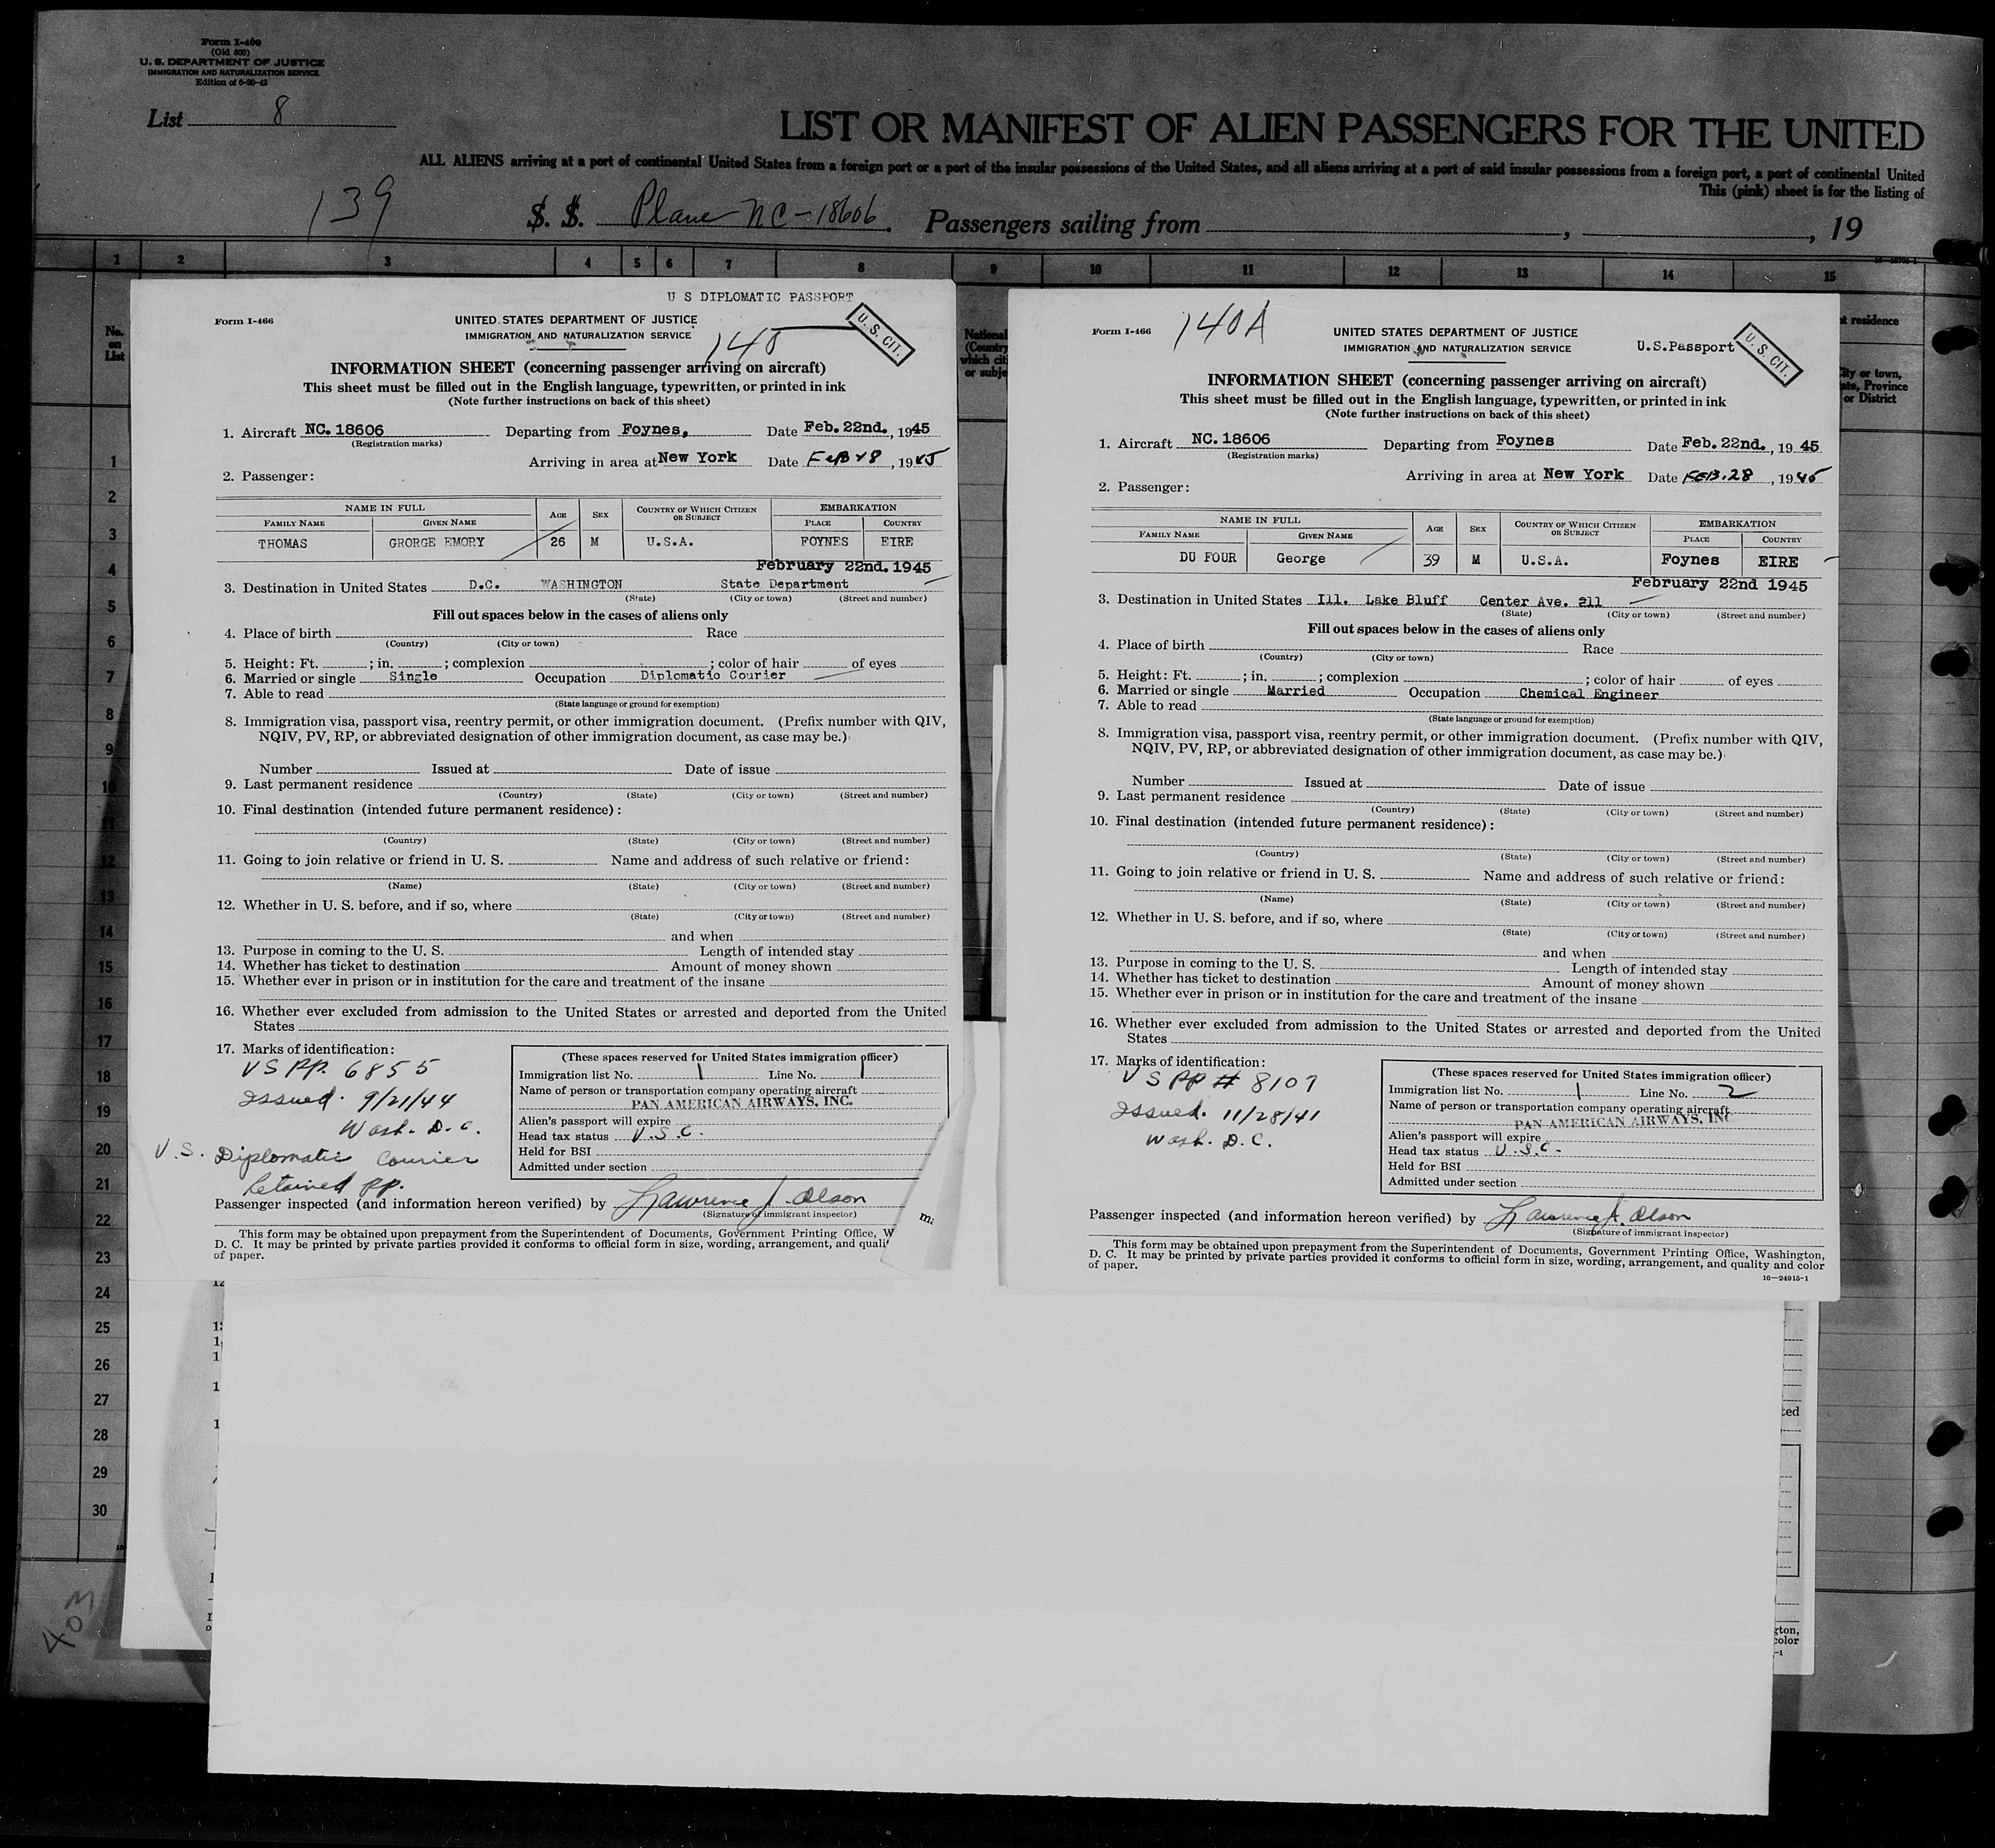 Form I-466
(Old 500)
U. S. DEPARTMENT OF JUSTICE
IMMIGRATION AND NATURALIZATION SERVICE
Edition of 6-20-42
List 8
LIST OR MANIFEST OF ALIEN PASSENGERS FOR THE UNITED
ALL ALIENS arriving at a port of continental United States from a foreign port or a port of the insular possessions of the United States, and all aliens arriving at a port of said insular possessions from a foreign port, a port of continental United
This (pink) sheet is for the listing of
139
S. S. Plane NC-18606. Passengers sailing from , , 19
1 2 3 4 5 6 7 8 9 10 11 12 13 14 15
No. on List
National
(Country
which citi
or subje
t residence
ity or town,
ate, Province
or District
1
2
3
4
5
6
7
8
9
10
11
12
13
14
15
16
17
18
19
20
21
22
23
24
25
26
27
28
29
30
403
U S DIPLOMATIC PASSPORT
Form I-466
UNITED STATES DEPARTMENT OF JUSTICE
IMMIGRATION AND NATURALIZATION SERVICE
140
U.S. CIT.
INFORMATION SHEET (concerning passenger arriving on aircraft)
This sheet must be filled out in the English language, typewritten, or printed in ink
(Note further instructions on back of this sheet)
1. Aircraft NC. 18606 Departing from Foynes, Date Feb. 22nd., 1945
(Registration marks)
Arriving in area at New York Date FEB 28, 1945
2. Passenger:
NAME IN FULL AGE SEX COUNTRY OF WHICH CITIZEN OR SUBJECT EMBARKATION
FAMILY NAME GIVEN NAME PLACE COUNTRY
THOMAS GRORGE EMORY 26 M U.S.A. FOYNES EIRE
February 22nd. 1945
3. Destination in United States D.C. WASHINGTON State Department
(State) (City or town) (Street and number)
Fill out spaces below in the cases of aliens only
4. Place of birth Race
(Country) (City or town)
5. Height: Ft. ; in. ; complexion ; color of hair of eyes
6. Married or single Single Occupation Diplomatic Courier
7. Able to read
(State language or ground for exemption)
8. Immigration visa, passport visa, reentry permit, or other immigration document. (Prefix number with QIV,
NQIV, PV, RP, or abbreviated designation of other immigration document, as case may be.)
Number Issued at Date of issue
9. Last permanent residence
(Country) (State) (City or town) (Street and number)
10. Final destination (intended future permanent residence):
(Country) (State) (City or town) (Street and number)
11. Going to join relative or friend in U. S. Name and address of such relative or friend:
(Name) (State) (City or town) (Street and number)
12. Whether in U. S. before, and if so, where
(State) (City or town) (Street and number)
and when
13. Purpose in coming to the U. S. Length of intended stay
14. Whether has ticket to destination Amount of money shown
15. Whether ever in prison or in institution for the care and treatment of the insane
16. Whether ever excluded from admission to the United States or arrested and deported from the United
States
17. Marks of identification:
VS PP. 6855
Issued. 9/21/44
Wash. D. C.
U.S. Diplomatic Courier
Retained pp.
(These spaces reserved for United States immigration officer)
Immigration list No. 1 Line No. 1
Name of person or transportation company operating aircraft
PAN AMERICAN AIRWAYS, INC.
Alien's passport will expire
Head tax status U.S.C.
Held for BSI
Admitted under section
Passenger inspected (and information hereon verified) by Lawrence J. Olson
(Signature of immigrant inspector)
This form may be obtained upon prepayment from the Superintendent of Documents, Government Printing Office, W
D. C. It may be printed by private parties provided it conforms to official form in size, wording, arrangement, and quali
of paper.
Form I-466
140A
UNITED STATES DEPARTMENT OF JUSTICE
IMMIGRATION AND NATURALIZATION SERVICE
U.S.Passport
U.S. CIT.
INFORMATION SHEET (concerning passenger arriving on aircraft)
This sheet must be filled out in the English language, typewritten, or printed in ink
(Note further instructions on back of this sheet)
1. Aircraft NC. 18606 Departing from Foynes Date Feb. 22nd., 1945
(Registration marks)
Arriving in area at New York Date FEB. 28, 1945
2. Passenger:
NAME IN FULL AGE SEX COUNTRY OF WHICH CITIZEN OR SUBJECT EMBARKATION
FAMILY NAME GIVEN NAME PLACE COUNTRY
DU FOUR George 39 M U.S.A. Foynes EIRE
February 22nd 1945
3. Destination in United States Ill. Lake Bluff Center Ave. 211
(State) (City or town) (Street and number)
Fill out spaces below in the cases of aliens only
4. Place of birth Race
(Country) (City or town)
5. Height: Ft. ; in. ; complexion ; color of hair of eyes
6. Married or single Married Occupation Chemical Engineer
7. Able to read
(State language or ground for exemption)
8. Immigration visa, passport visa, reentry permit, or other immigration document. (Prefix number with QIV,
NQIV, PV, RP, or abbreviated designation of other immigration document, as case may be.)
Number Issued at Date of issue
9. Last permanent residence
(Country) (State) (City or town) (Street and number)
10. Final destination (intended future permanent residence):
(Country) (State) (City or town) (Street and number)
11. Going to join relative or friend in U. S. Name and address of such relative or friend:
(Name) (State) (City or town) (Street and number)
12. Whether in U. S. before, and if so, where
(State) (City or town) (Street and number)
and when
13. Purpose in coming to the U. S. Length of intended stay
14. Whether has ticket to destination Amount of money shown
15. Whether ever in prison or in institution for the care and treatment of the insane
16. Whether ever excluded from admission to the United States or arrested and deported from the United
States
17. Marks of identification:
VS PP # 8107
Issued. 11/28/41
Wash. D.C.
(These spaces reserved for United States immigration officer)
Immigration list No. 1 Line No. 2
Name of person or transportation company operating aircraft
PAN AMERICAN AIRWAYS, INC
Alien's passport will expire
Head tax status U.S.C.
Held for BSI
Admitted under section
Passenger inspected (and information hereon verified) by Lawrence J. Olson
(Signature of immigrant inspector)
This form may be obtained upon prepayment from the Superintendent of Documents, Government Printing Office, Washington,
D. C. It may be printed by private parties provided it conforms to official form in size, wording, arrangement, and quality and color
of paper.
16—24915-1
gton,
color
-1